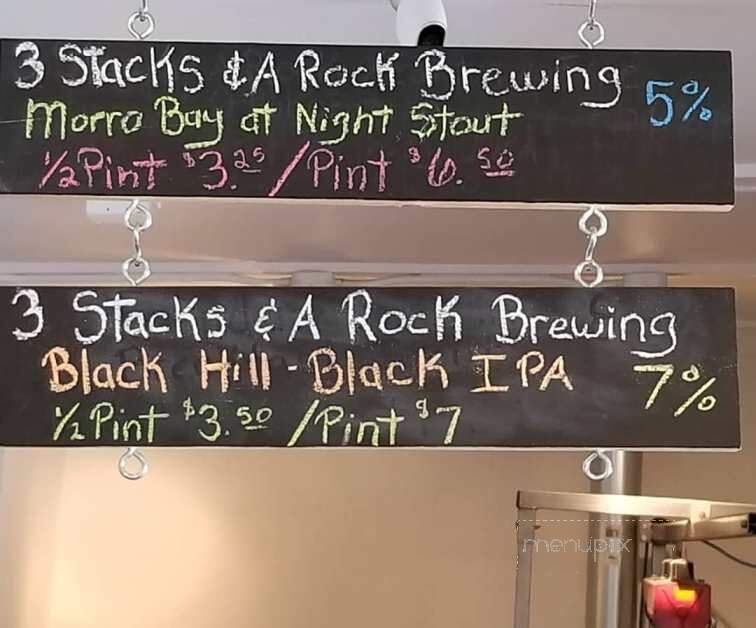 3 Stacks & A Rock Brewing 5%
Morro Bay at Night Stout
1/2 Pint $3.25 / Pint $6.50
3 Stacks & A Rock Brewing
Black Hill - Black IPA 7%
1/2 Pint $3.50 / Pint $7
menupix